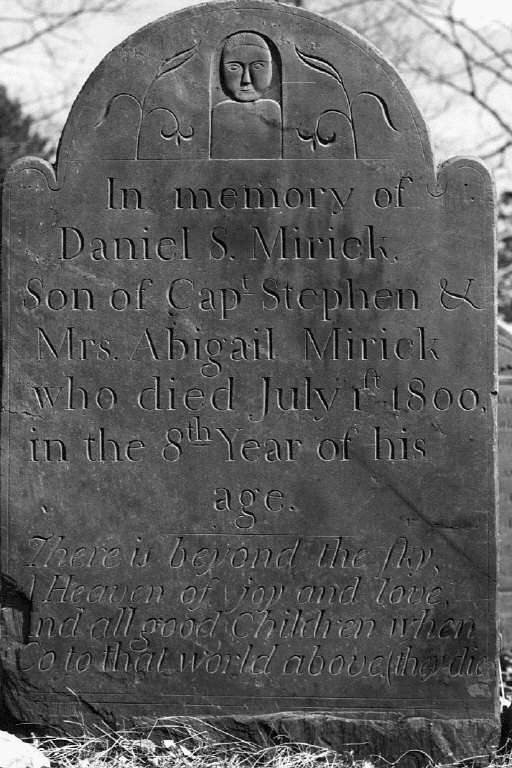 In memory of
Daniel S. Mirick.
Son of Capt Stephen &
Mrs. Abigail Mirick
who died July 1ſt 1800,
in the 8th Year of his
age.
There is beyond the ſky,
Heaven of joy and love,
nd all good Children when
Go to that world above, (they die